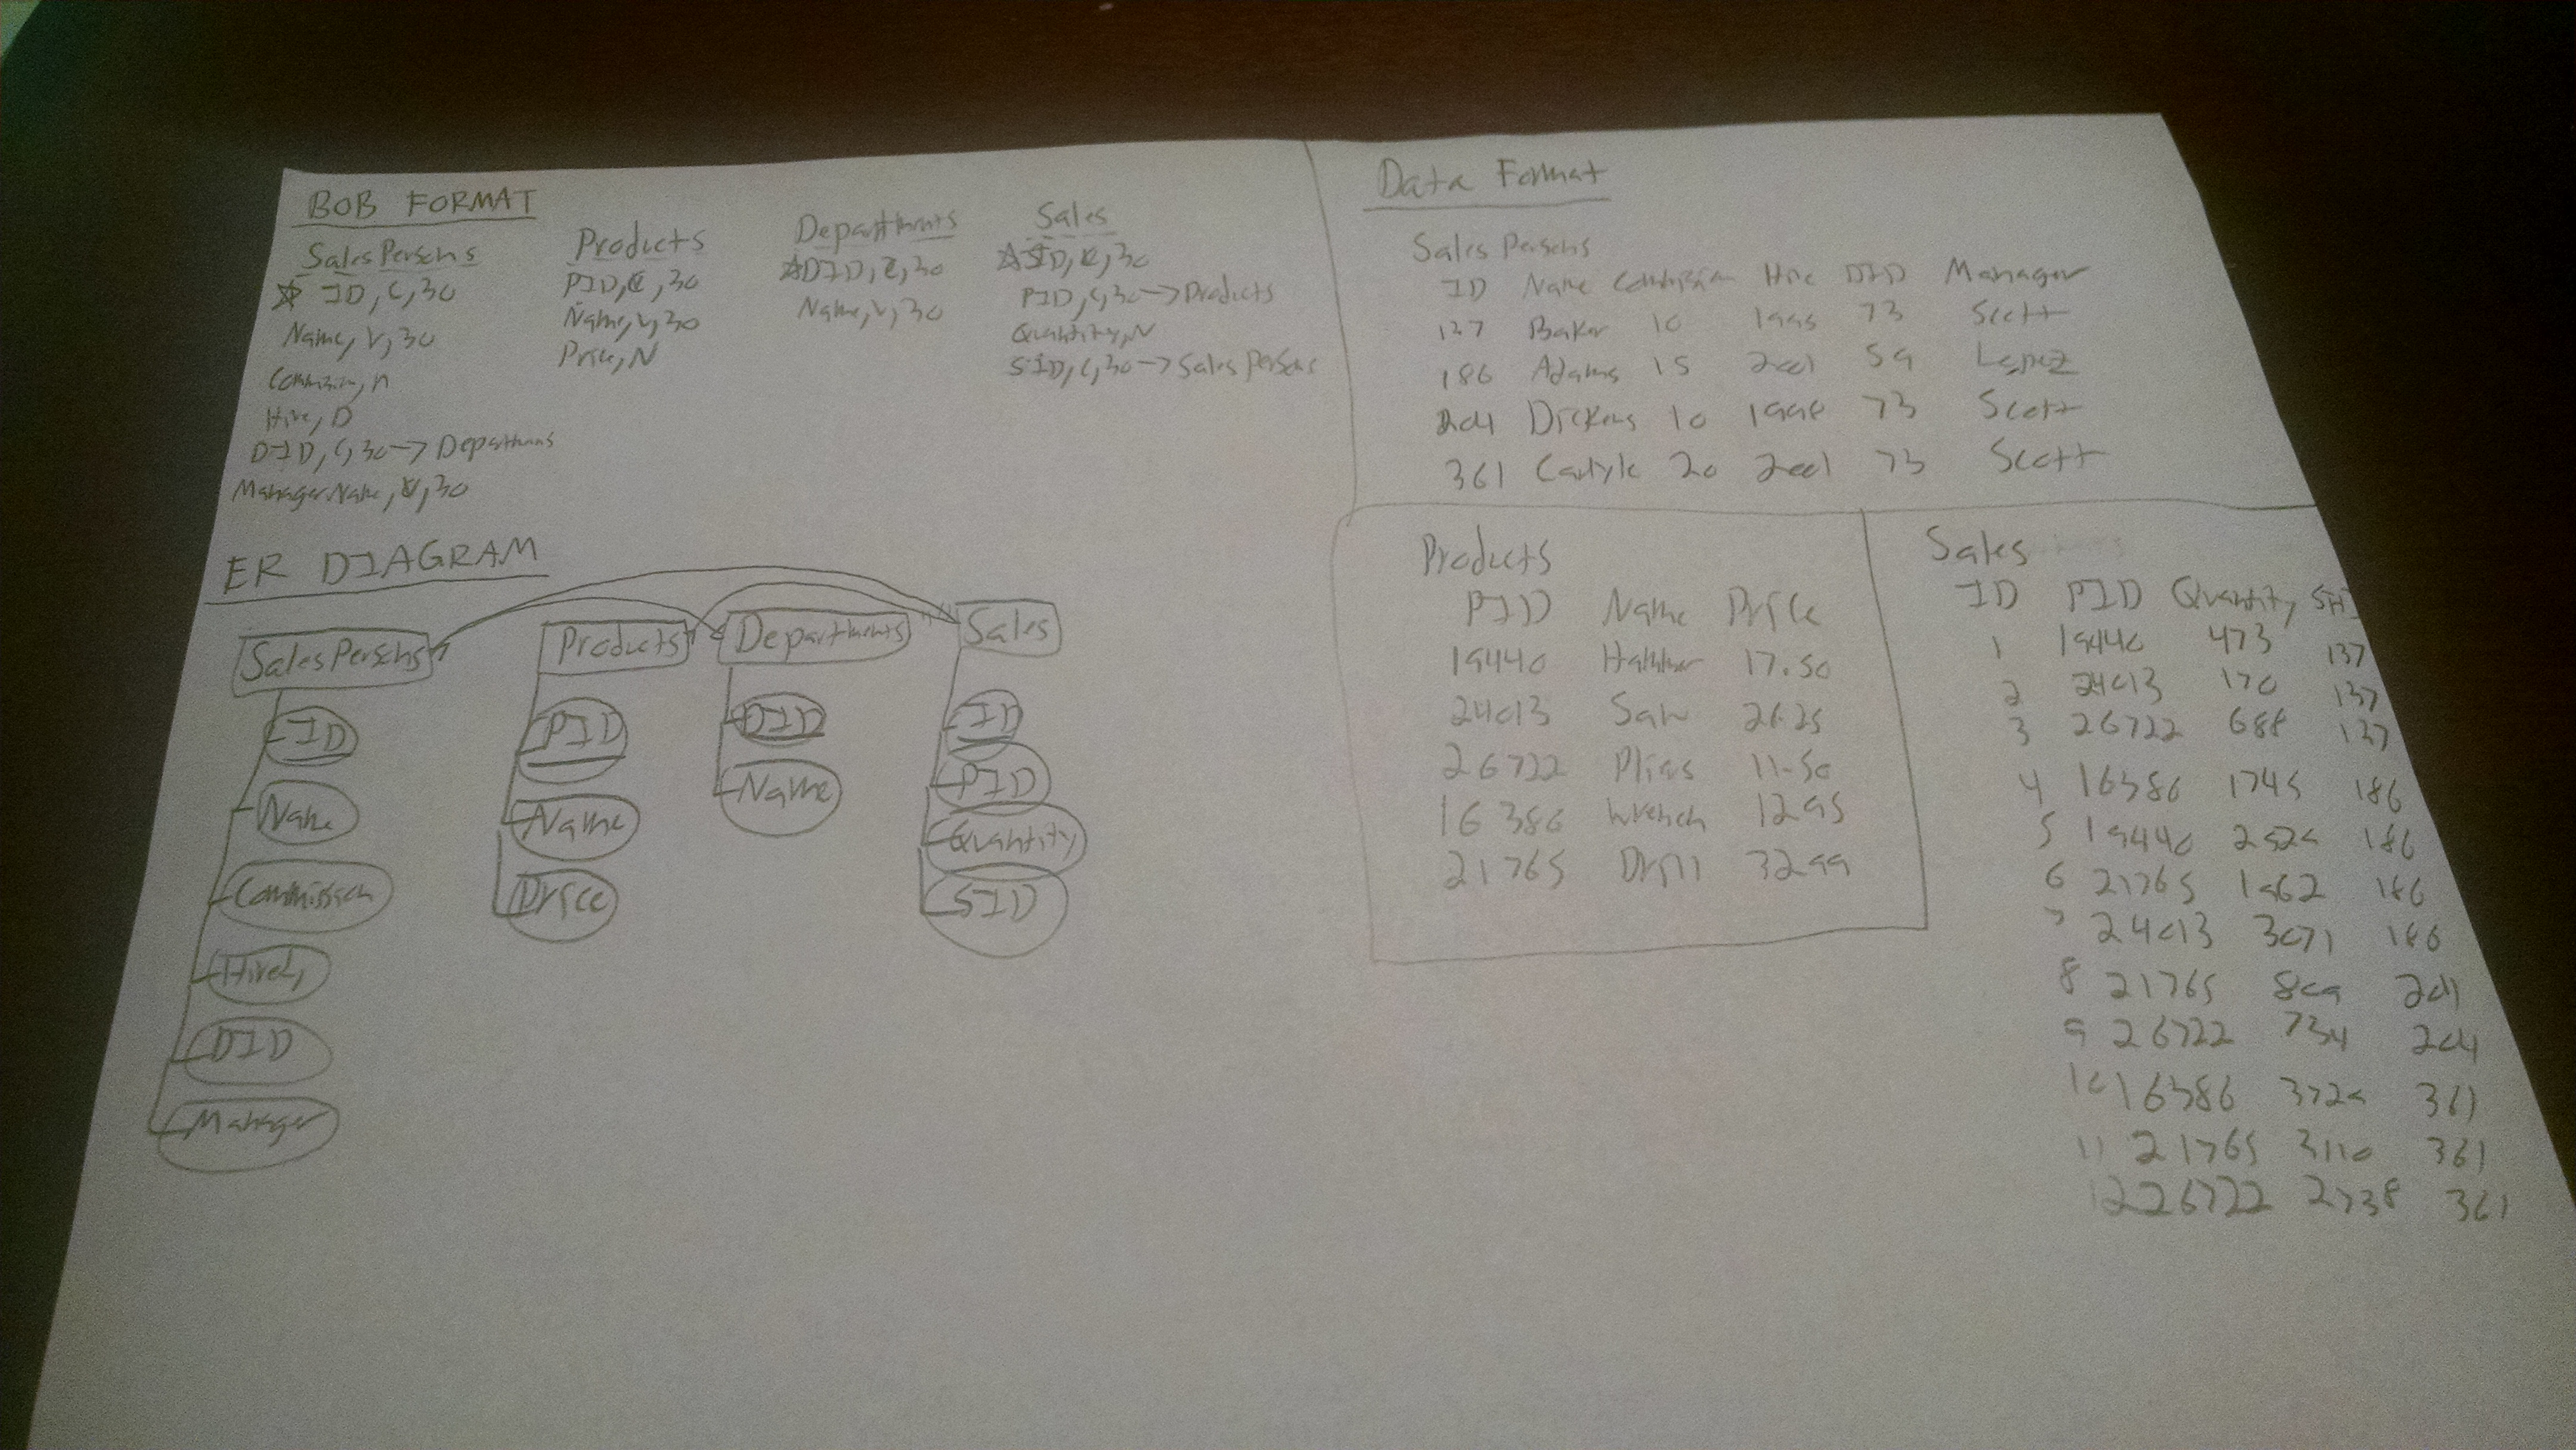 BOB FORMAT
SalesPersons
ID, C, 30
Name, V, 30
Commission, n
Hire, D
DID, C, 30 → Departments
ManagerName, V, 30
Products
PID, C, 30
Name, V, 30
Price, N
Departments
DID, C, 30
Name, V, 30
Sales
ID, C, 30
PID, C, 30 → Products
Quantity, N
SID, C, 30 → SalesPersons
ER DIAGRAM
SalesPersons
ID
Name
Commission
DID
Manager
Products
PID
Name
Price
Departments
DID
Name
Sales
ID
PID
Quantity
SID
Data Format
SalesPersons
ID Name Commission Hire DID Manager
137 Baker 10 1995 73 Scott
186 Adams 15 2001 59 Lopez
204 Dickens 10 1998 73 Scott
361 Carlyle 20 2001 73 Scott
Products
PID Name Price
19440 Hammer 17.50
24013 Saw 26.25
26722 Pliers 11.50
16386 Wrench 12.95
21765 Drill 32.99
Sales
ID PID Quantity
1 19440 473 137
2 24013 170 137
3 26722 688 137
4 16386 1745 186
5 19440 2529 186
6 21765 1962 186
7 24013 3071 186
8 21765 809 204
9 26722 734 204
10 16386 3729 361
11 21765 3110 361
12 26722 2738 361